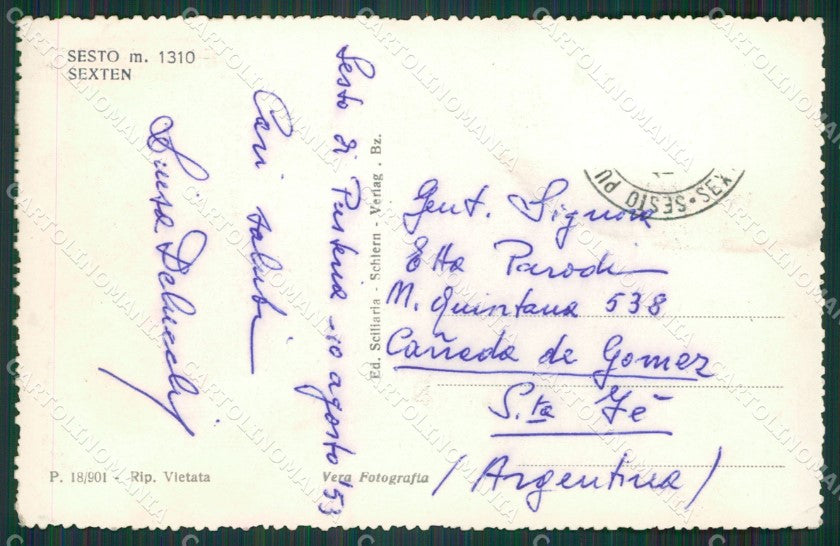 SESTO m. 1310
SEXTEN
Sesto di Pusteria - 10 agosto '53
Cari saluti
Delucchi
Ed. Sciliaria - Schlern - Verlag . Bz.
SEX
SESTO PU
Gent. Signora
Etta Parodi
M. Quintana 538
Cañada de Gomez
S.ta Fè
(Argentina)
P. 18/901 - Rip. Vietata
Vera Fotografia
CARTOLINOMANIA